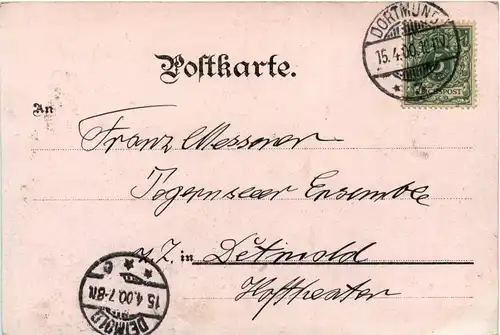 DORTMUND
15.4.00.
REICHSPOST
Postkarte.
An
Franz Messener
Tegernseer Ensemble
z. Z. in Detmold
Hoftheater
DETMOLD
15.4.00.7-8N.